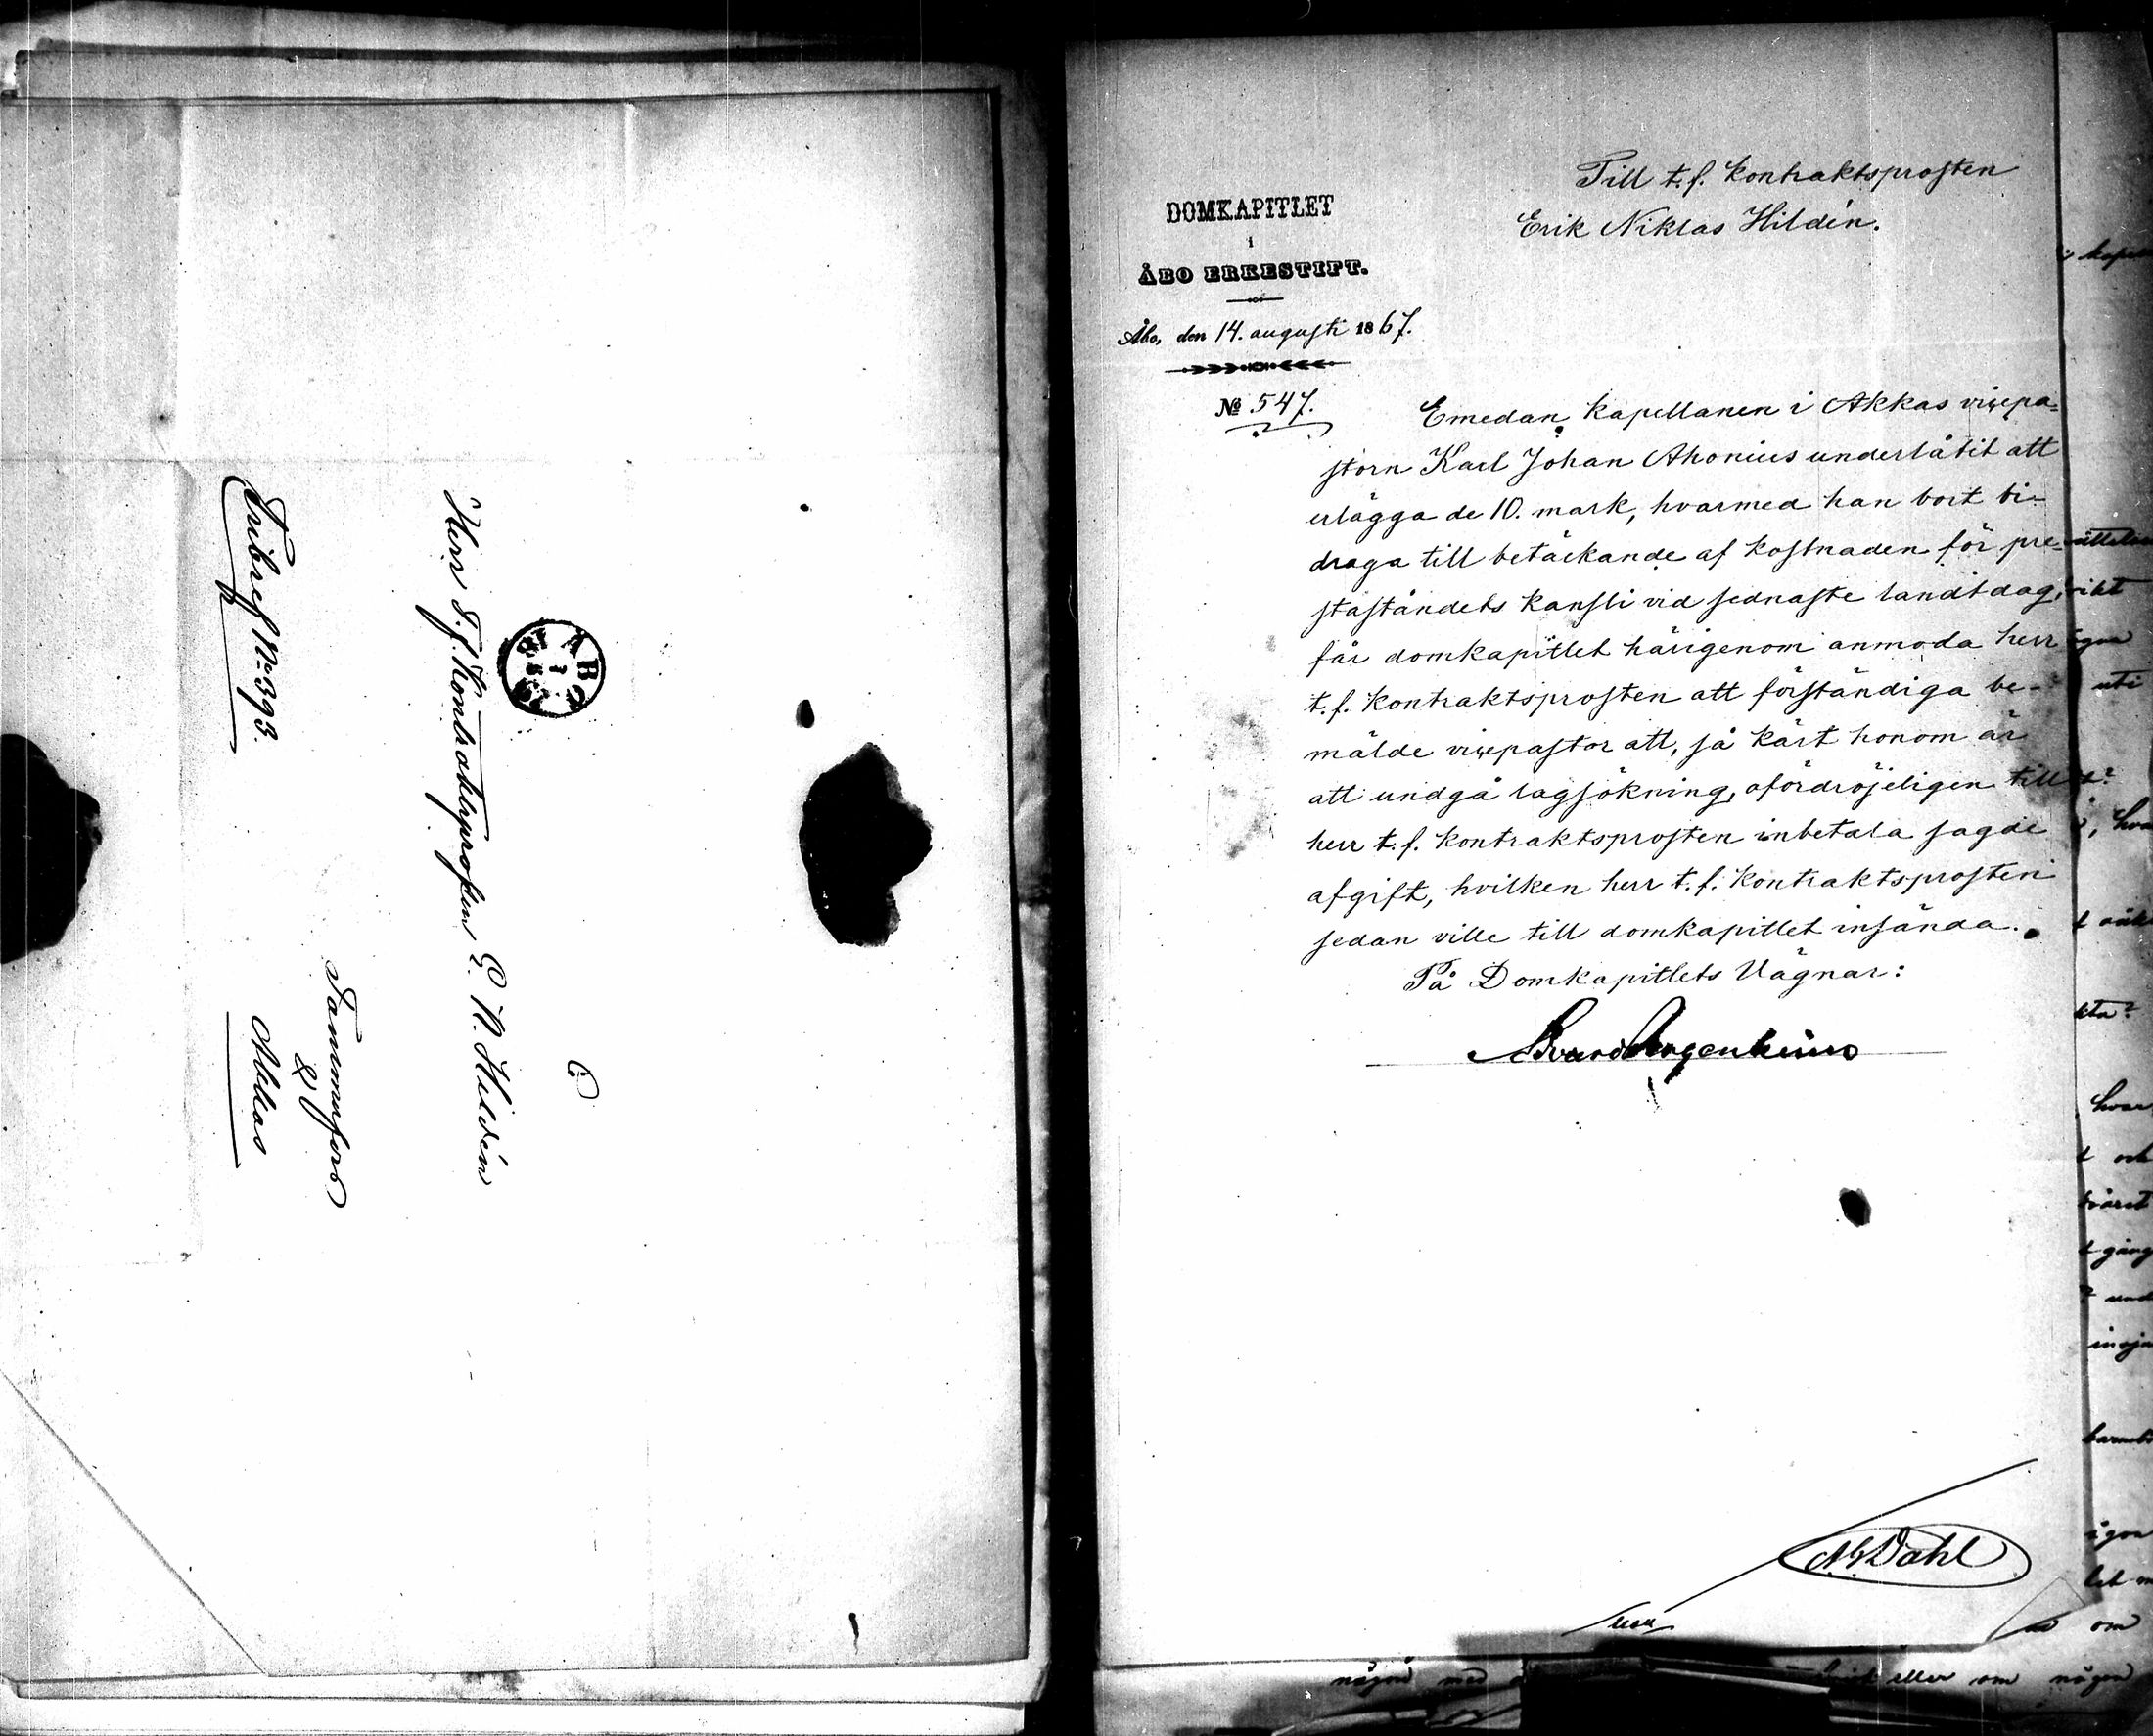 Fribref No 393.
Herr T. f. Kontraktsprosten E. N. Hildén
Tammerfors
&
Akkas
ÅBO
Till t. f. Kontraktsprosten
Erik Niklas Hildén.
DOMKAPITLET
i
ÅBO ERKESTIFT.
Åbo, den 14. augusti 1867.
No 547.
Emedan kapellanen i Akkas vicepa-
storn Karl Johan Ahonius underlåtit att
erlägga de 10. mark, hvarmed han bort bi-
draga till betäckande af kostnaden för pre-
staståndets kansli vid sednaste landtdag,
får domkapitlet härigenom anmoda herr
t. f. kontraktsprosten att förständiga be-
mälde vicepastor att, så kärt honom är
att undgå lagsökning, ofördröjeligen till
herr t. f. kontraktsprosten inbetala sagde
afgift, hvilken herr t. f. kontraktsprosten
sedan ville till domkapitlet insända.
På Domkapitlets Vägnar:
Dahl
någon med
eller om någon